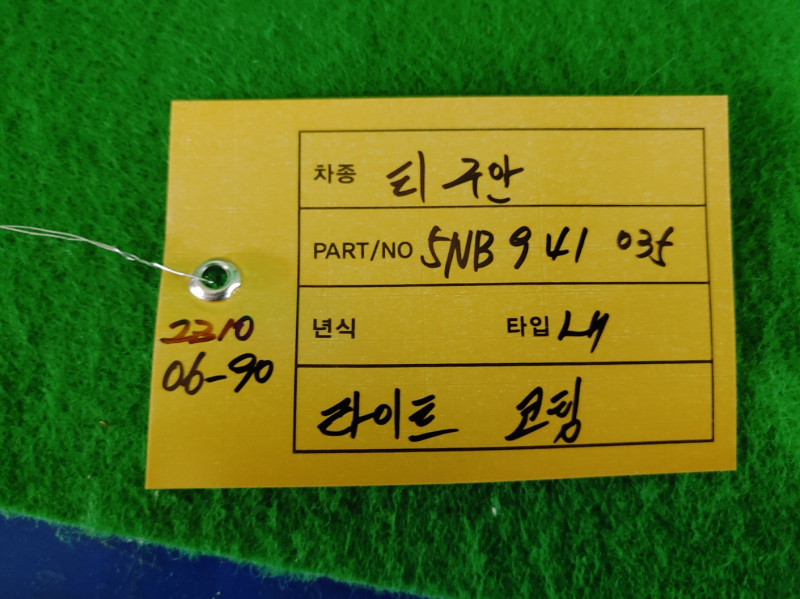 차종 티구안
PART/NO 5NB 941 035
년식 타입 LH
라이트 코팅
2310
06-90